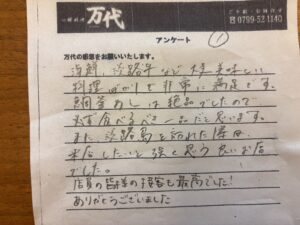 万代
☎0799-52-1140
アンケート
①
万代の感想をお願いいたします。
海鮮、淡路牛など様々美味しい
料理ばかりで非常に満足です。
鯛釜めしは絶品でしたので
必ず食べるべき一品だと思います。
また淡路島を訪れた際は、
来店したいと強く思う良いお店
でした。
店員の皆様の接客も最高でした!
ありがとうございました